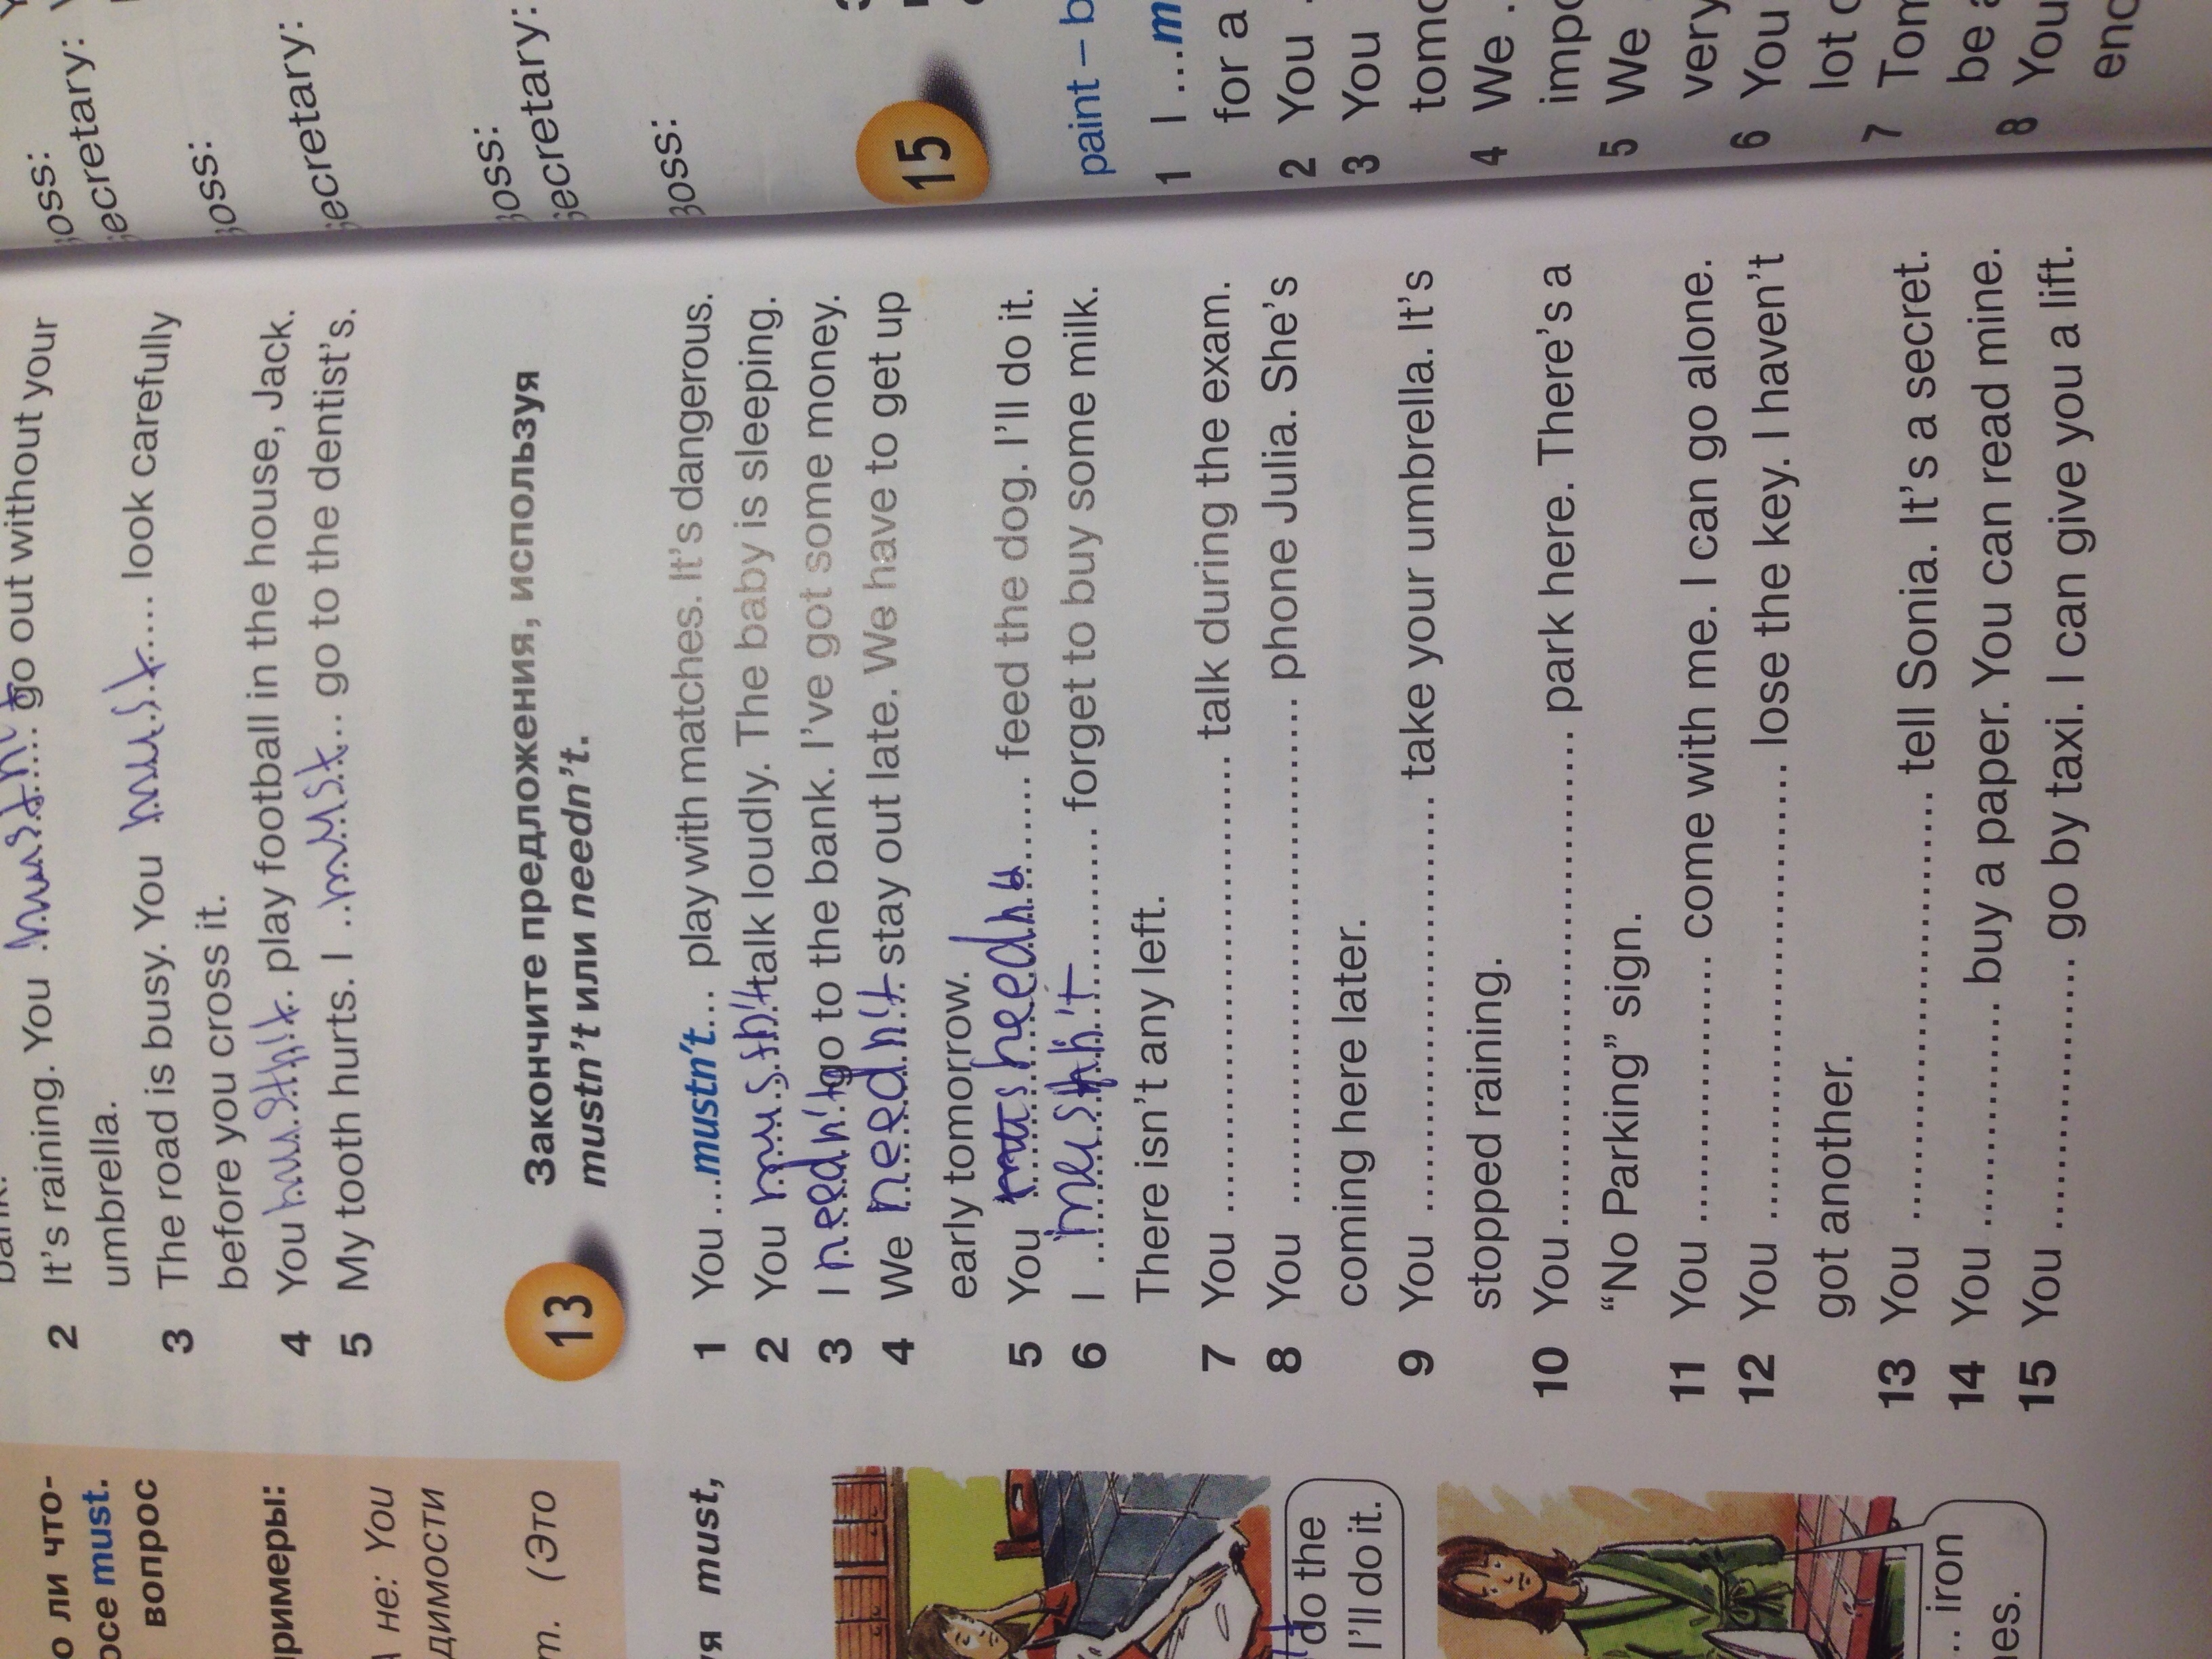 о ли что-
осе must.
вопрос
римеры:
не: You
димости
т. (Это
я must,
do the
I'll do it.
... iron
nes.
bank.
2 It's raining. You mustn't go out without your
umbrella.
3 The road is busy. You must look carefully
before you cross it.
4 You mustn't play football in the house, Jack.
5 My tooth hurts. I must go to the dentist's.
13 Закончите предложения, используя
mustn't или needn't.
1 You ...mustn't... play with matches. It's dangerous.
2 You mustn't talk loudly. The baby is sleeping.
3 I needn't go to the bank. I've got some money.
4 We needn't stay out late. We have to get up
early tomorrow.
5 You needn't feed the dog. I'll do it.
6 I mustn't forget to buy some milk.
There isn't any left.
7 You ........................ talk during the exam.
8 You ........................ phone Julia. She's
coming here later.
9 You ........................ take your umbrella. It's
stopped raining.
10 You ........................ park here. There's a
“No Parking” sign.
11 You ........................ come with me. I can go alone.
12 You ........................ lose the key. I haven't
got another.
13 You ........................ tell Sonia. It's a secret.
14 You ........................ buy a paper. You can read mine.
15 You ........................ go by taxi. I can give you a lift.
oss:
ecretary:
oss:
ecretary:
oss:
ecretary:
Boss:
15
paint – b
1 I ...m
for a
2 You
3 You
tomo
4 We
impo
5 We
very
6 You
lot o
7 Tom
be a
8 You
enc